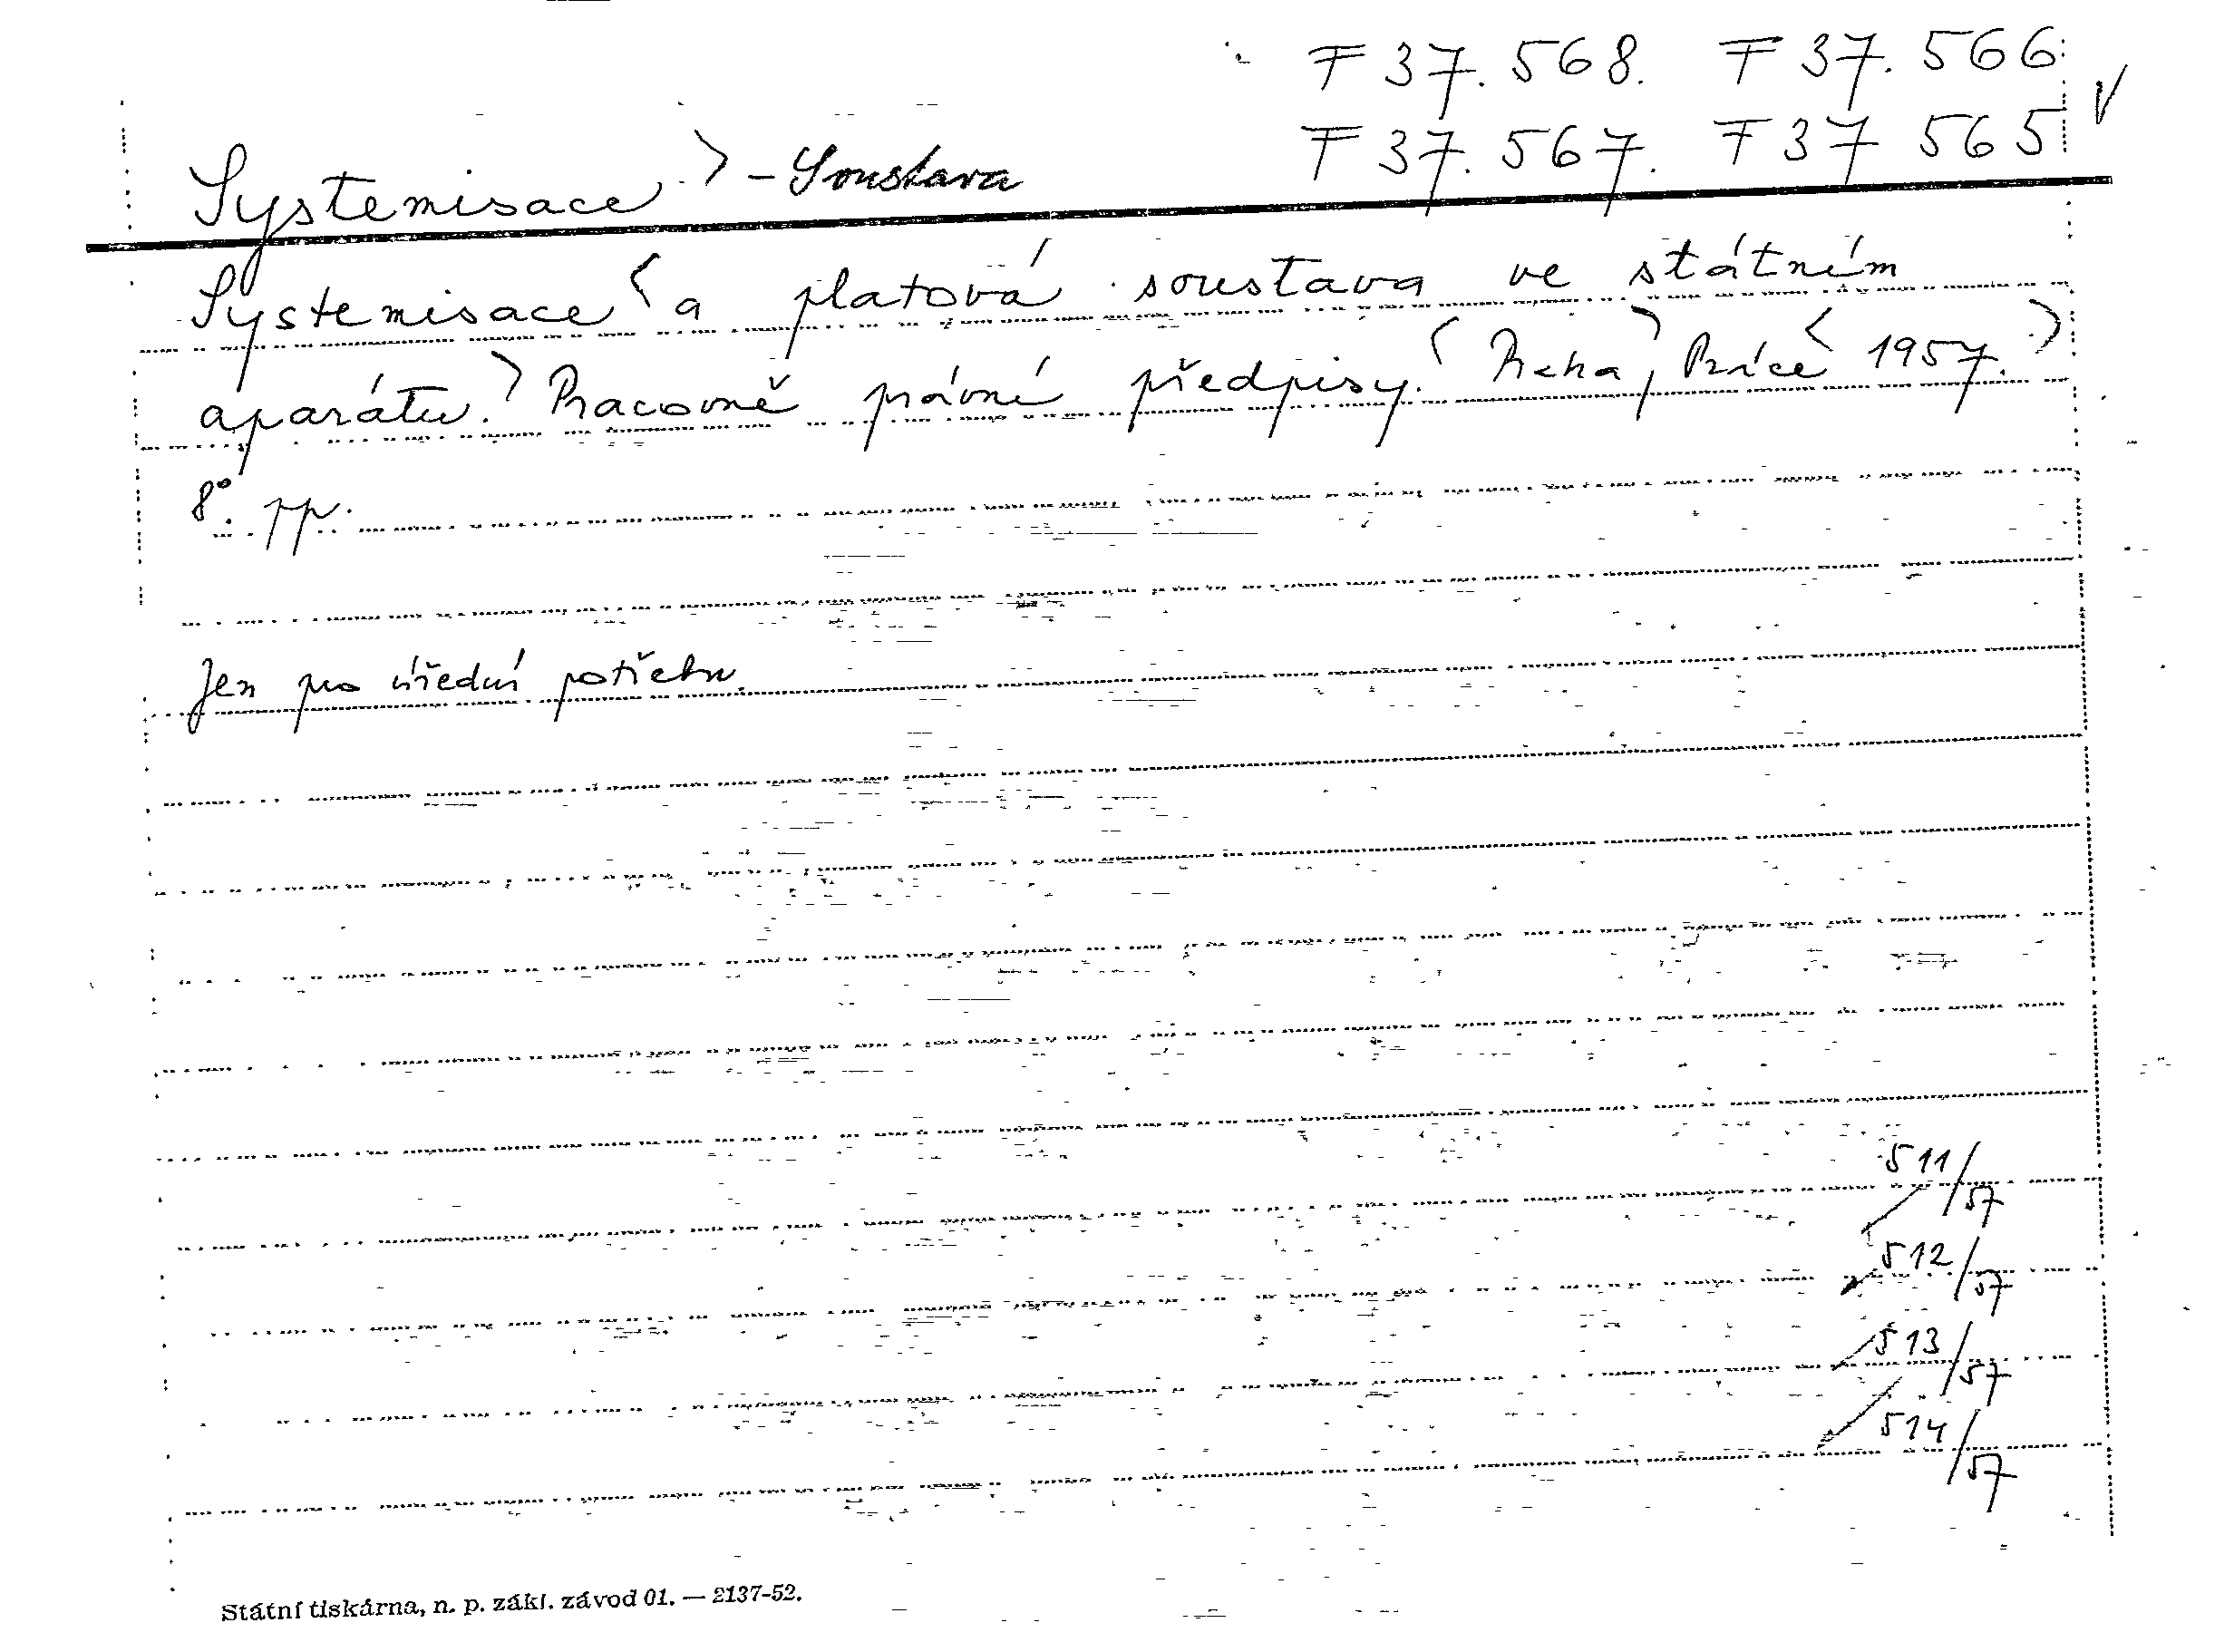 F 37.568. F 37.566
F 37.567. F 37 565
Systemisace - Soustava
Systemisace a platová soustava ve státním
aparátu. Pracovně právní předpisy. Praha, Práce 1957.
8°. pp.
Jen pro úřední potřebu.
511/57
512/57
513/57
514/57
Státní tiskárna, n. p. zákl. závod 01. — 2137-52.